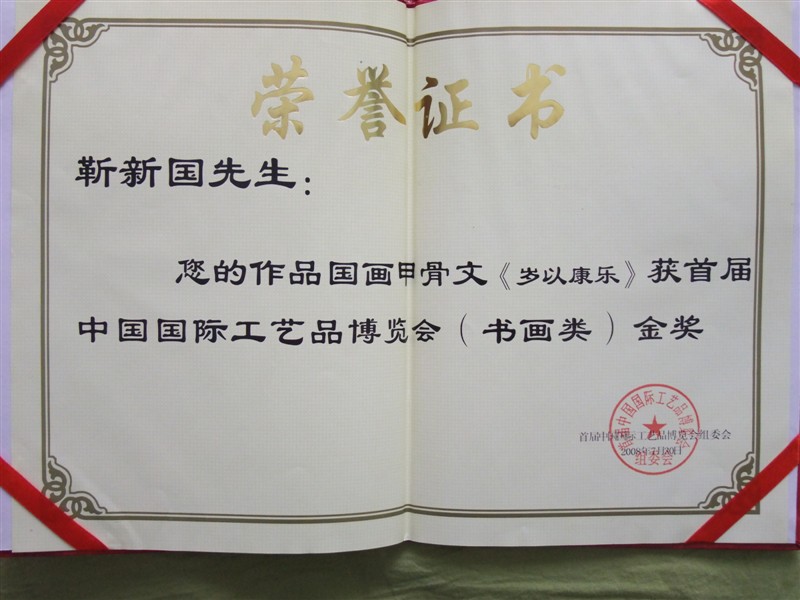 荣誉证书
靳新国先生：
您的作品国画甲骨文《岁以康乐》获首届
中国国际工艺品博览会（书画类）金奖
首届中国国际工艺品博览会组委会
2008年7月30日
首届中国国际工艺品博览会
组委会